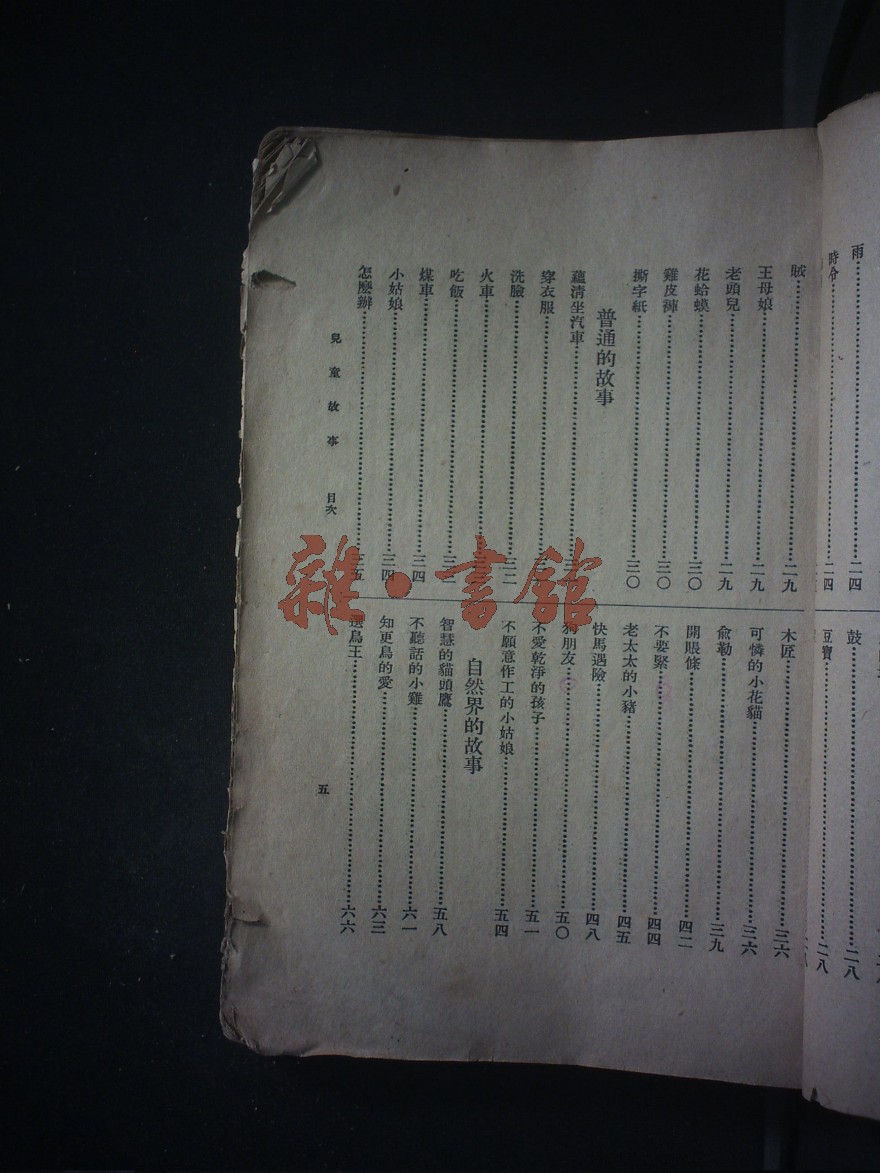 鼓……二八
雨……二四
豆寶……二八
時令……二四
賊……二九
王母娘……二九
老頭兒……二九
花蛤蟆……三〇
雞皮褲……三〇
撕字紙……三〇
普通的故事
蘊清坐汽車
穿衣服
洗臉
火車
吃飯
煤車……三四
小姑娘……三四
怎麼辦
木匠……三六
可憐的小花貓……三六
俞勒……三九
開賬條……四二
不要緊……四四
老太太的小豬……四五
快馬遇險……四八
狗朋友……五〇
不愛乾淨的孩子……五一
不願意作工的小姑娘……五四
自然界的故事
智慧的貓頭鷹……五八
不聽話的小雞……六一
知更鳥的愛……六三
選鳥王……六六
兒童故事 目次
五
雜·書館